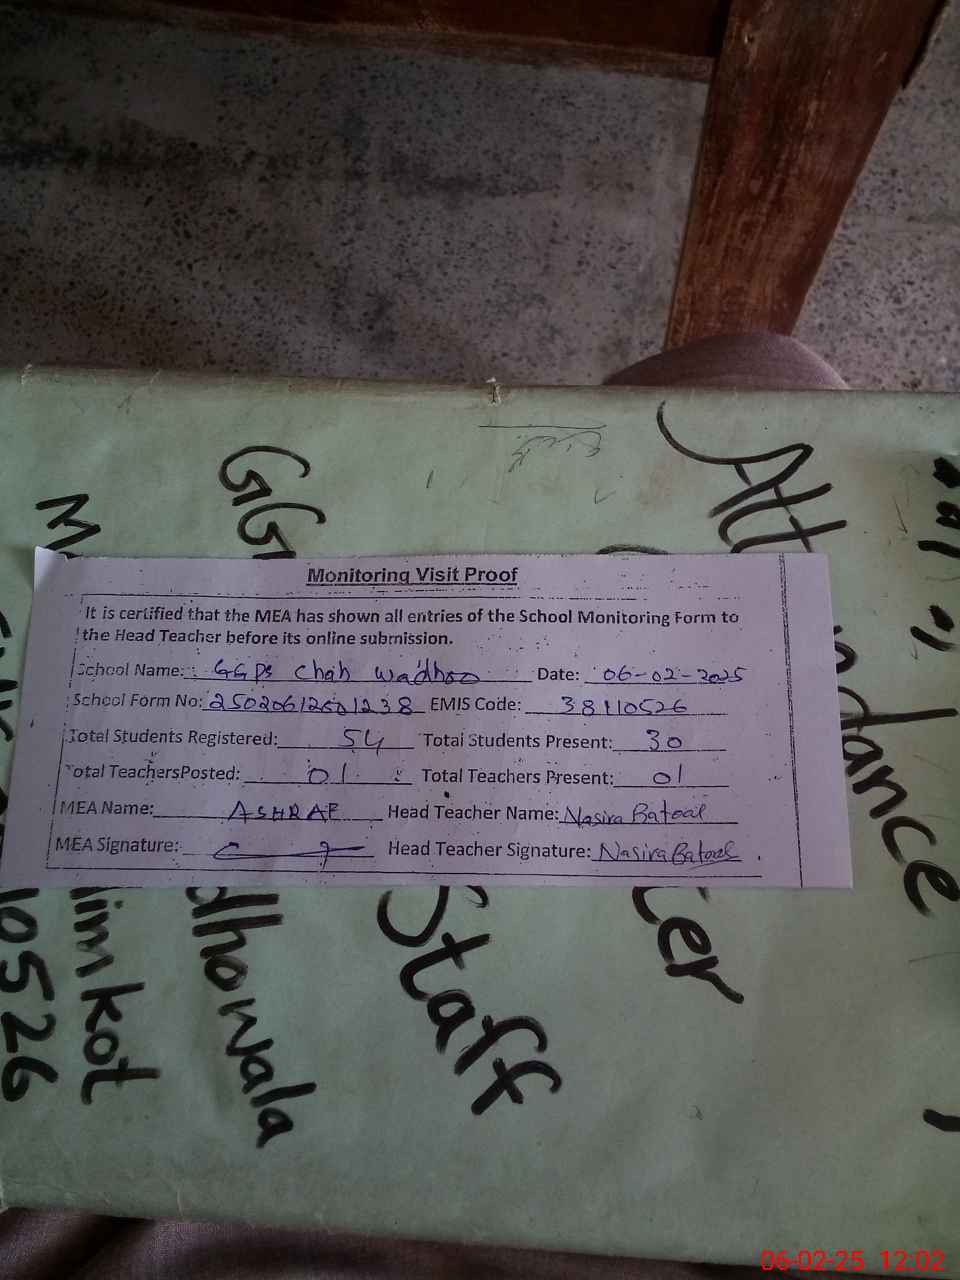 Monitoring Visit Proof
It is certified that the MEA has shown all entries of the School Monitoring Form to
the Head Teacher before its online submission.
School Name: GGPS Chah Wadhoo Date: 06-02-2025
School Form No: 25020612601238 EMIS Code: 38110526
Total Students Registered: 54 Total Students Present: 30
Total TeachersPosted: 01 Total Teachers Present: 01
MEA Name: ASHRAF Head Teacher Name: Nasira Batool
MEA Signature: Head Teacher Signature: Nasira Batool
Att ndance
Staff
GG
dhowala
kot
10526
06-02-25 12:02